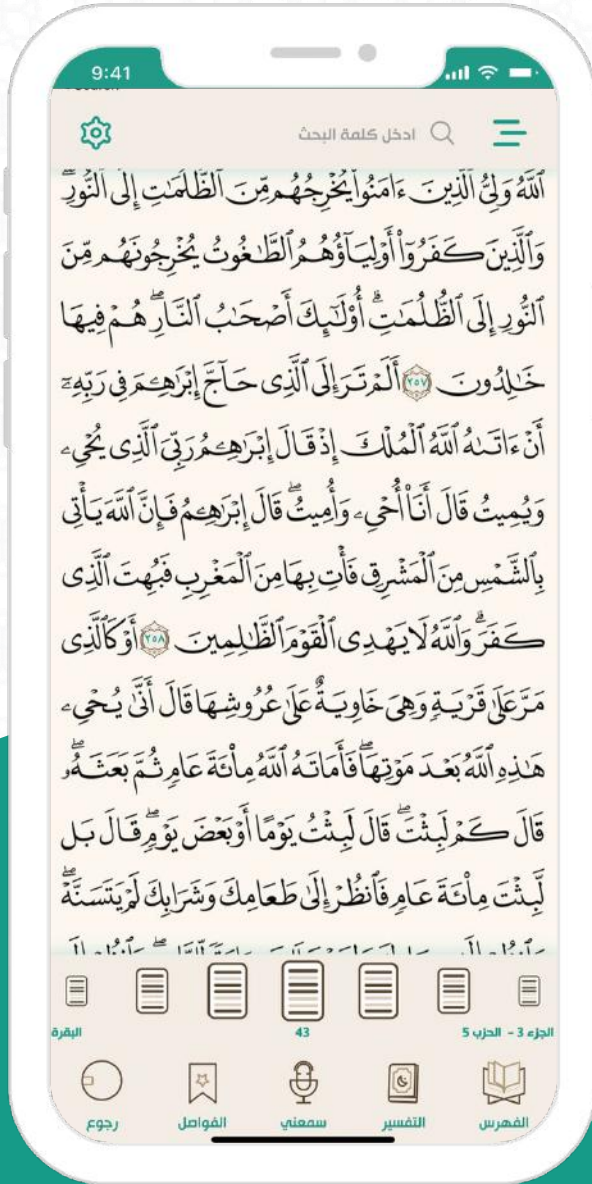 9:41
ادخل كلمة البحث
ٱللَّهُ وَلِيُّ ٱلَّذِينَ ءَامَنُوا۟ يُخْرِجُهُم مِّنَ ٱلظُّلُمَٰتِ إِلَى ٱلنُّورِ ۖ
وَٱلَّذِينَ كَفَرُوٓا۟ أَوْلِيَآؤُهُمُ ٱلطَّٰغُوتُ يُخْرِجُونَهُم مِّنَ
ٱلنُّورِ إِلَى ٱلظُّلُمَٰتِ ۗ أُو۟لَٰٓئِكَ أَصْحَٰبُ ٱلنَّارِ ۖ هُمْ فِيهَا
خَٰلِدُونَ ٢٥٧ أَلَمْ تَرَ إِلَى ٱلَّذِى حَآجَّ إِبْرَٰهِـۧمَ فِى رَبِّهِۦٓ
أَنْ ءَاتَىٰهُ ٱللَّهُ ٱلْمُلْكَ إِذْ قَالَ إِبْرَٰهِـۧمُ رَبِّىَ ٱلَّذِى يُحْىِۦ
وَيُمِيتُ قَالَ أَنَا۠ أُحْىِۦ وَأُمِيتُ ۖ قَالَ إِبْرَٰهِـۧمُ فَإِنَّ ٱللَّهَ يَأْتِى
بِٱلشَّمْسِ مِنَ ٱلْمَشْرِقِ فَأْتِ بِهَا مِنَ ٱلْمَغْرِبِ فَبُهِتَ ٱلَّذِى
كَفَرَ ۗ وَٱللَّهُ لَا يَهْدِى ٱلْقَوْمَ ٱلظَّٰلِمِينَ ٢٥٨ أَوْ كَٱلَّذِى
مَرَّ عَلَىٰ قَرْيَةٍ وَهِىَ خَاوِيَةٌ عَلَىٰ عُرُوشِهَا قَالَ أَنَّىٰ يُحْىِۦ
هَٰذِهِ ٱللَّهُ بَعْدَ مَوْتِهَا ۖ فَأَمَاتَهُ ٱللَّهُ مِا۟ئَةَ عَامٍ ثُمَّ بَعَثَهُۥ ۖ
قَالَ كَمْ لَبِثْتَ ۖ قَالَ لَبِثْتُ يَوْمًا أَوْ بَعْضَ يَوْمٍ ۖ قَالَ بَل
لَّبِثْتَ مِا۟ئَةَ عَامٍ فَٱنظُرْ إِلَىٰ طَعَامِكَ وَشَرَابِكَ لَمْ يَتَسَنَّهْ ۖ
الجزء 3 - الحزب 5 43 البقرة
الفهرس التفسير سمعني الفواصل رجوع